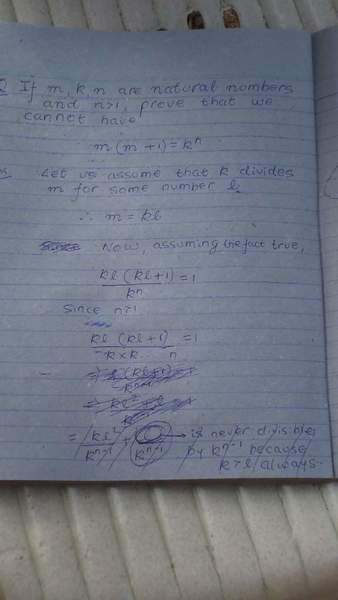 Q If m, k, n are natural numbers
and n>1, prove that we
cannot have
m(m+1)=kⁿ
Let us assume that k divides
m for some number l,
∴ m = kl
Now, assuming the fact true,
kl (kl+1) = 1
kⁿ
Since n>1
kl (kl+1) = 1
k×k n
= kl² +
kⁿ⁻¹ kⁿ⁻¹
→ is never divisible
by kⁿ⁻¹ because
k>l always.